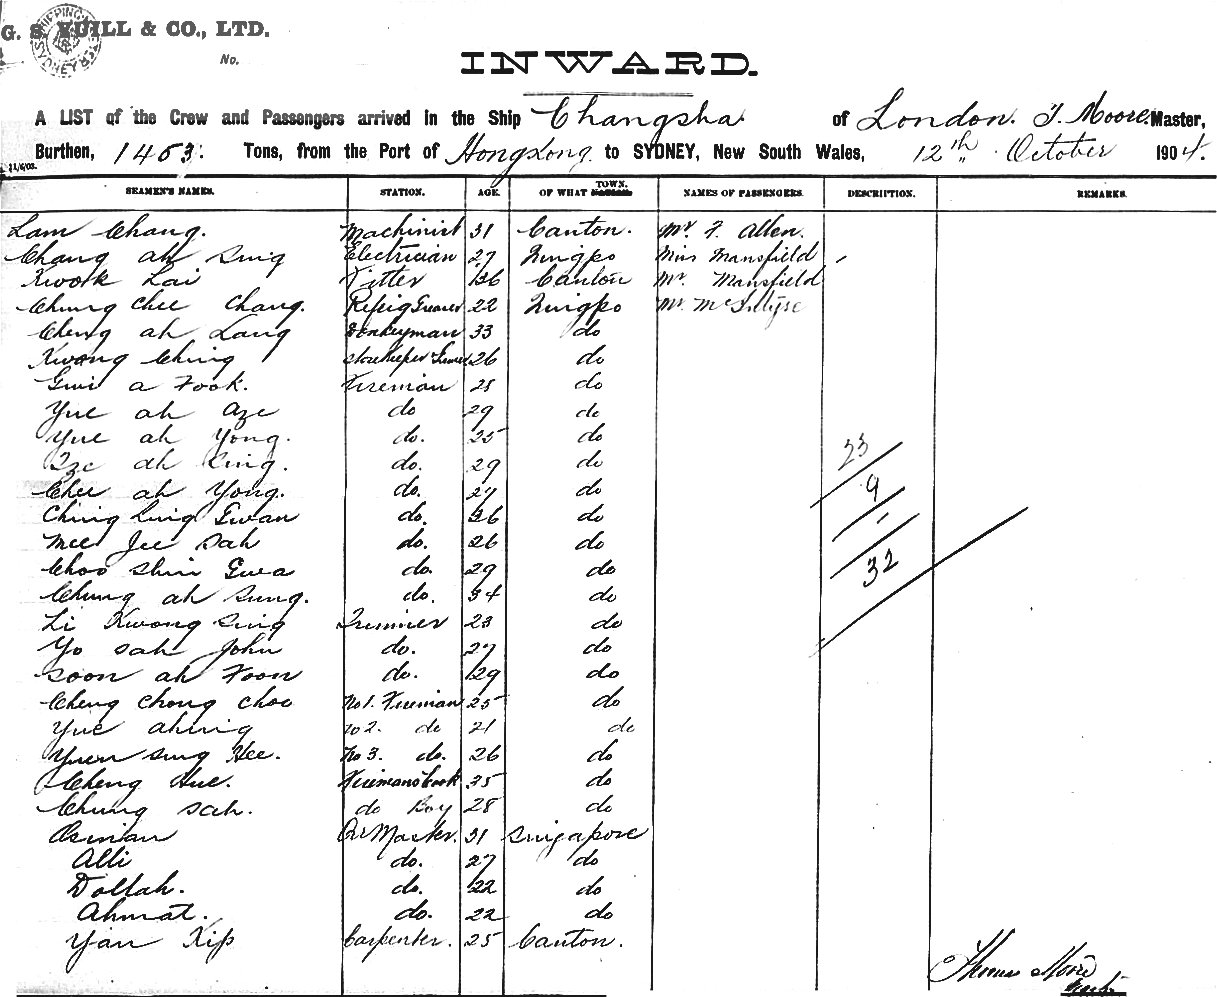 G. S. YUILL & CO., LTD.
SHIPPING SYDNEY
No.
INWARD.
A LIST of the Crew and Passengers arrived in the Ship Changsha of London. T. Moore Master,
Burthen, 1463. Tons, from the Port of Hong Kong to SYDNEY, New South Wales, 12th October 1904.
21/6/03.
SEAMEN'S NAMES. STATION. AGE. OF WHAT TOWN. NAMES OF PASSENGERS. DESCRIPTION. REMARKS.
Lam Chang. Machinist 31 Canton. Mr F. Allen.
Chang ah Sing Electrician 27 Ningpo Miss Mansfield
Kwok Lai Fitter 36 Canton Mr. Mansfield
Chung Chee Chang. Refrig Greaser 22 Ningpo Mr.
Cheng ah Lang Donkeyman 33 do
Kwong Ching Storekeeper 26 do
a Fook. Fireman 28 do
Yue ah Aze do 29 do
Yue ah Yong. do. 25 do
Zze ah Ling. do. 29 do
23
Chee ah Yong. do. 27 do
9
Ching Ling Gwan do. 36 do
Mee Jee Sah do. 26 do
Choo Shin Gwa do. 29 do
32
Chung ah Sung. do. 34 do
Li Kwong Sing Trimmer 23 do
Yo Sah John do. 27 do
Soon ah Foon do. 29 do
Cheng Chong Choo No 1. Fireman 25 do
Yue ahing No 2. do 21 do
Yuen Sung Hee. No 3. do. 26 do
Cheng Hue. Firemans Cook 35 do
Chung Sah. do Boy 28 do
Osman Qr Master. 31 Singapore
Alli do. 27 do
Dollah. do. 22 do
Ahmat. do. 22 do
Yan Kip Carpenter. 25 Canton.
Thomas Moore
Master